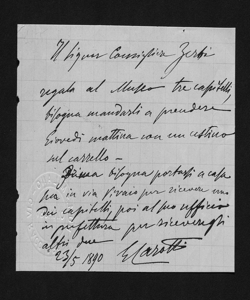 Il Signor Consigliere Zerbi
regala al Museo tre capitelli,
bisogna mandarli a prendere
giovedì mattina con un cestino
sul carrello –
Prima bisogna portarsi a casa
sua in via Vivaio per ricevere uno
dei capitelli, poi al suo ufficio
in prefettura per ricevere gli
altri due
23/5 1890 G Carotti